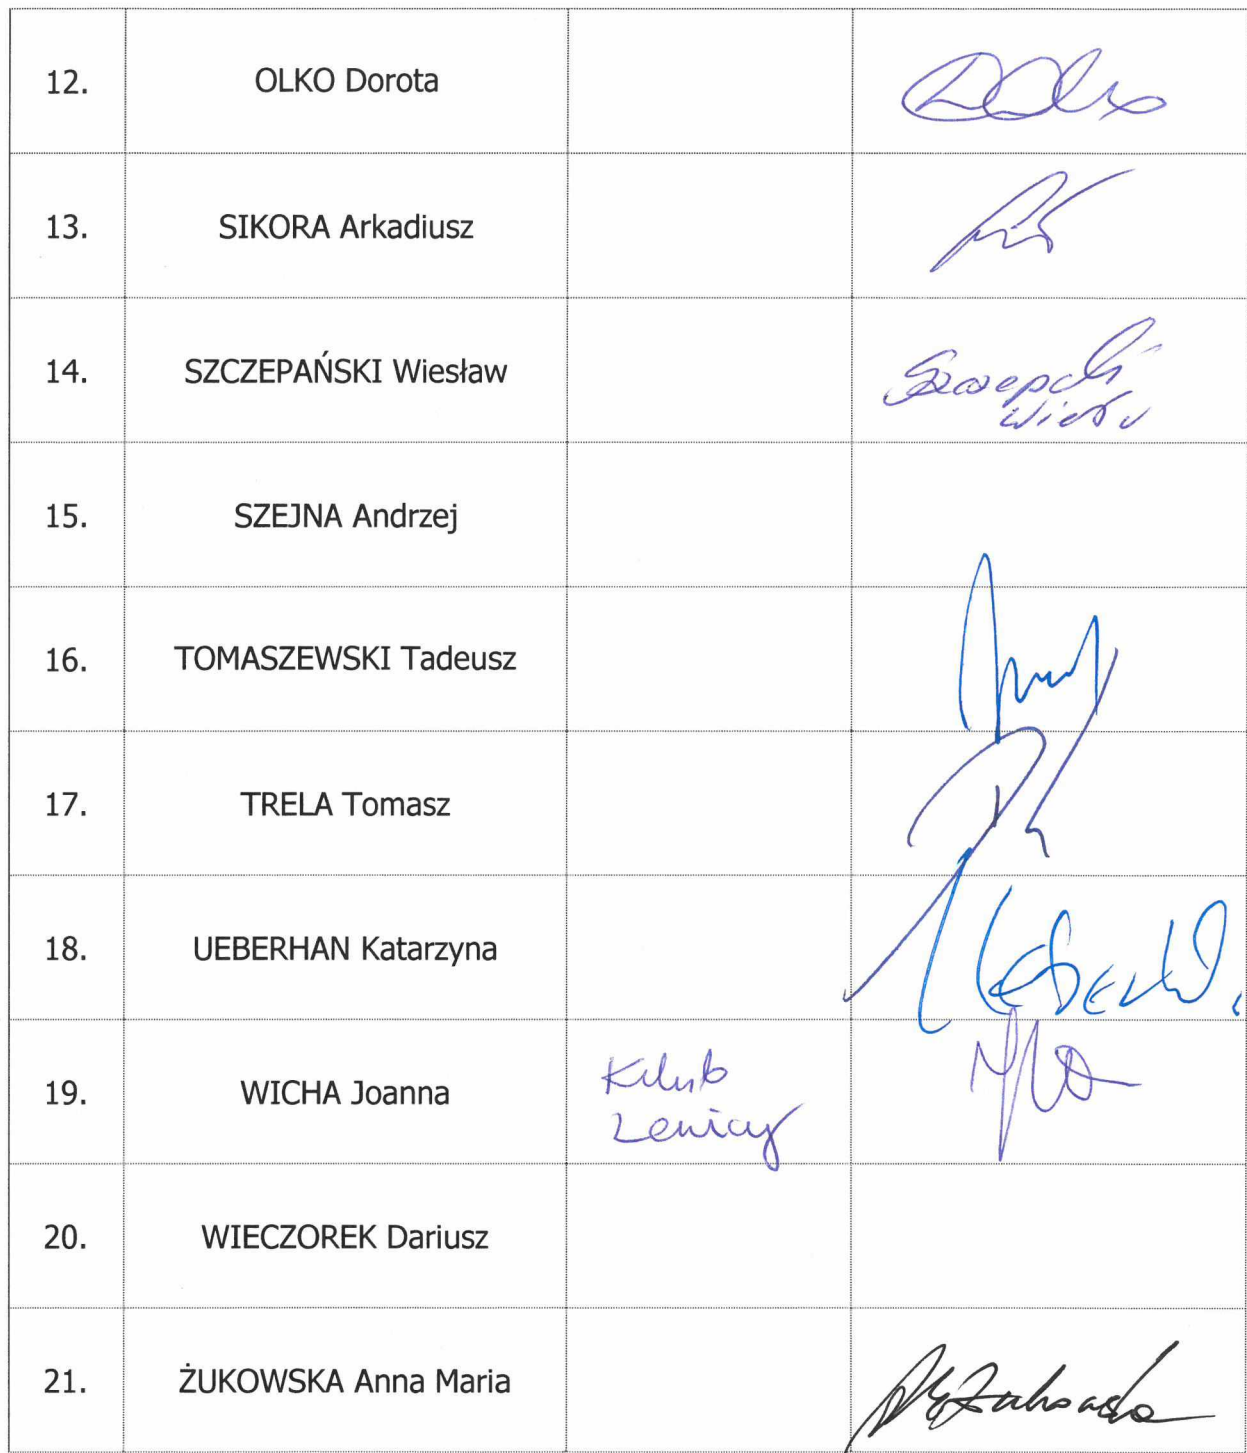 12. OLKO Dorota
13. SIKORA Arkadiusz
14. SZCZEPAŃSKI Wiesław
15. SZEJNA Andrzej
16. TOMASZEWSKI Tadeusz
17. TRELA Tomasz
18. UEBERHAN Katarzyna
19. WICHA Joanna Klub
Lewicy
20. WIECZOREK Dariusz
21. ŻUKOWSKA Anna Maria